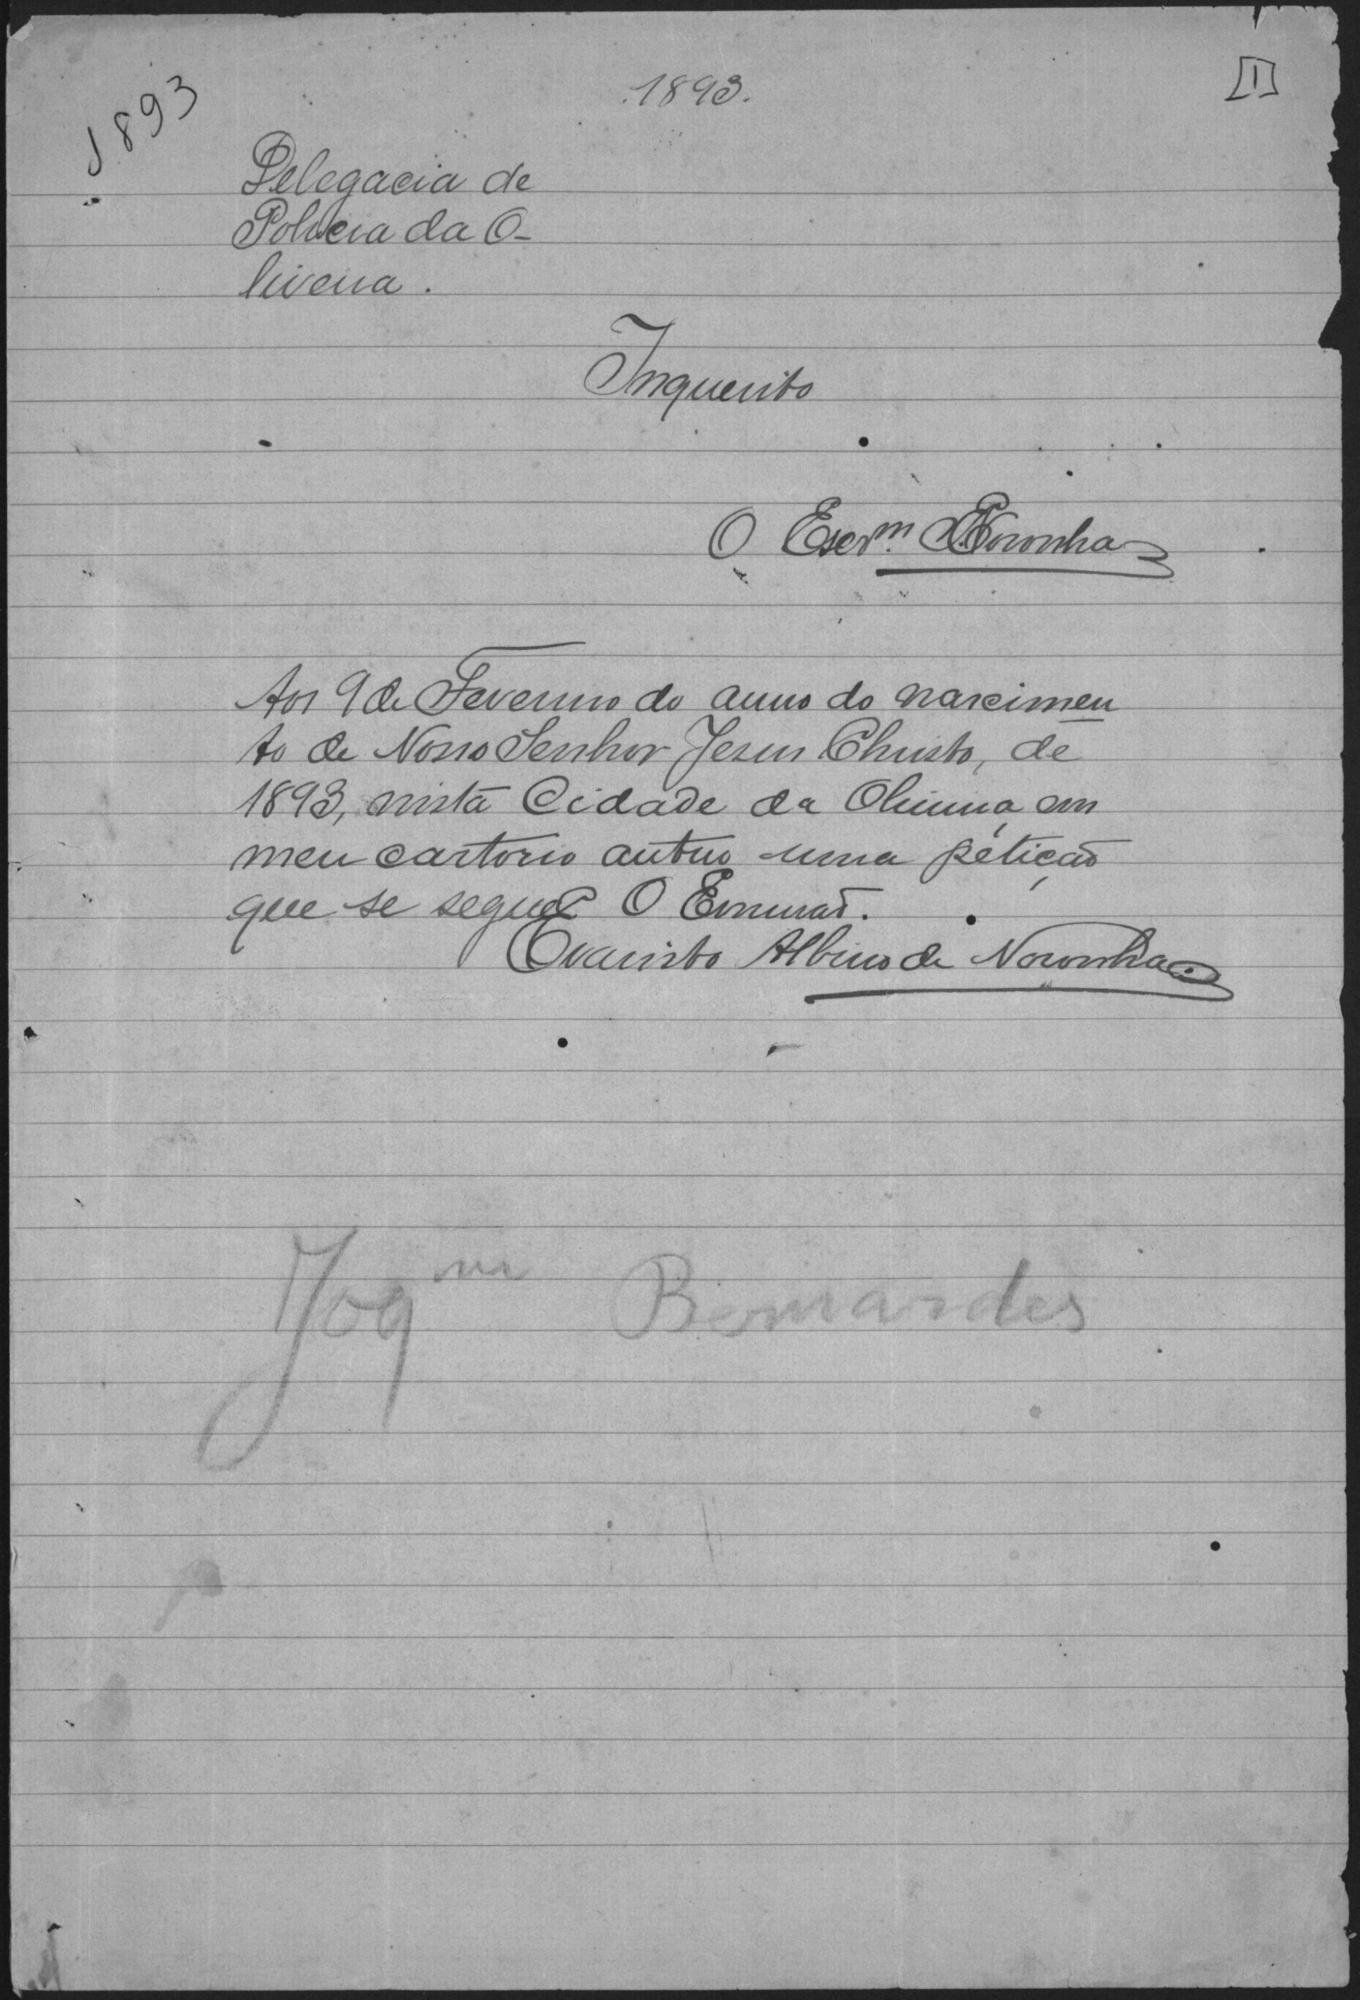 1893
.1893.
[1]
Delegacia de
Policia da O-
liveira.
Inquerito
O Escr.m Noronha
Aos 9 de Fevereiro do anno do nascimen
to de Nosso Senhor Jesus Christo, de
1893, nesta Cidade da Oliveira em
meu cartorio autuo uma petição
que se segue O Escrivaõ.
Evaristo Albino de Noronha
Joqm Bernardes